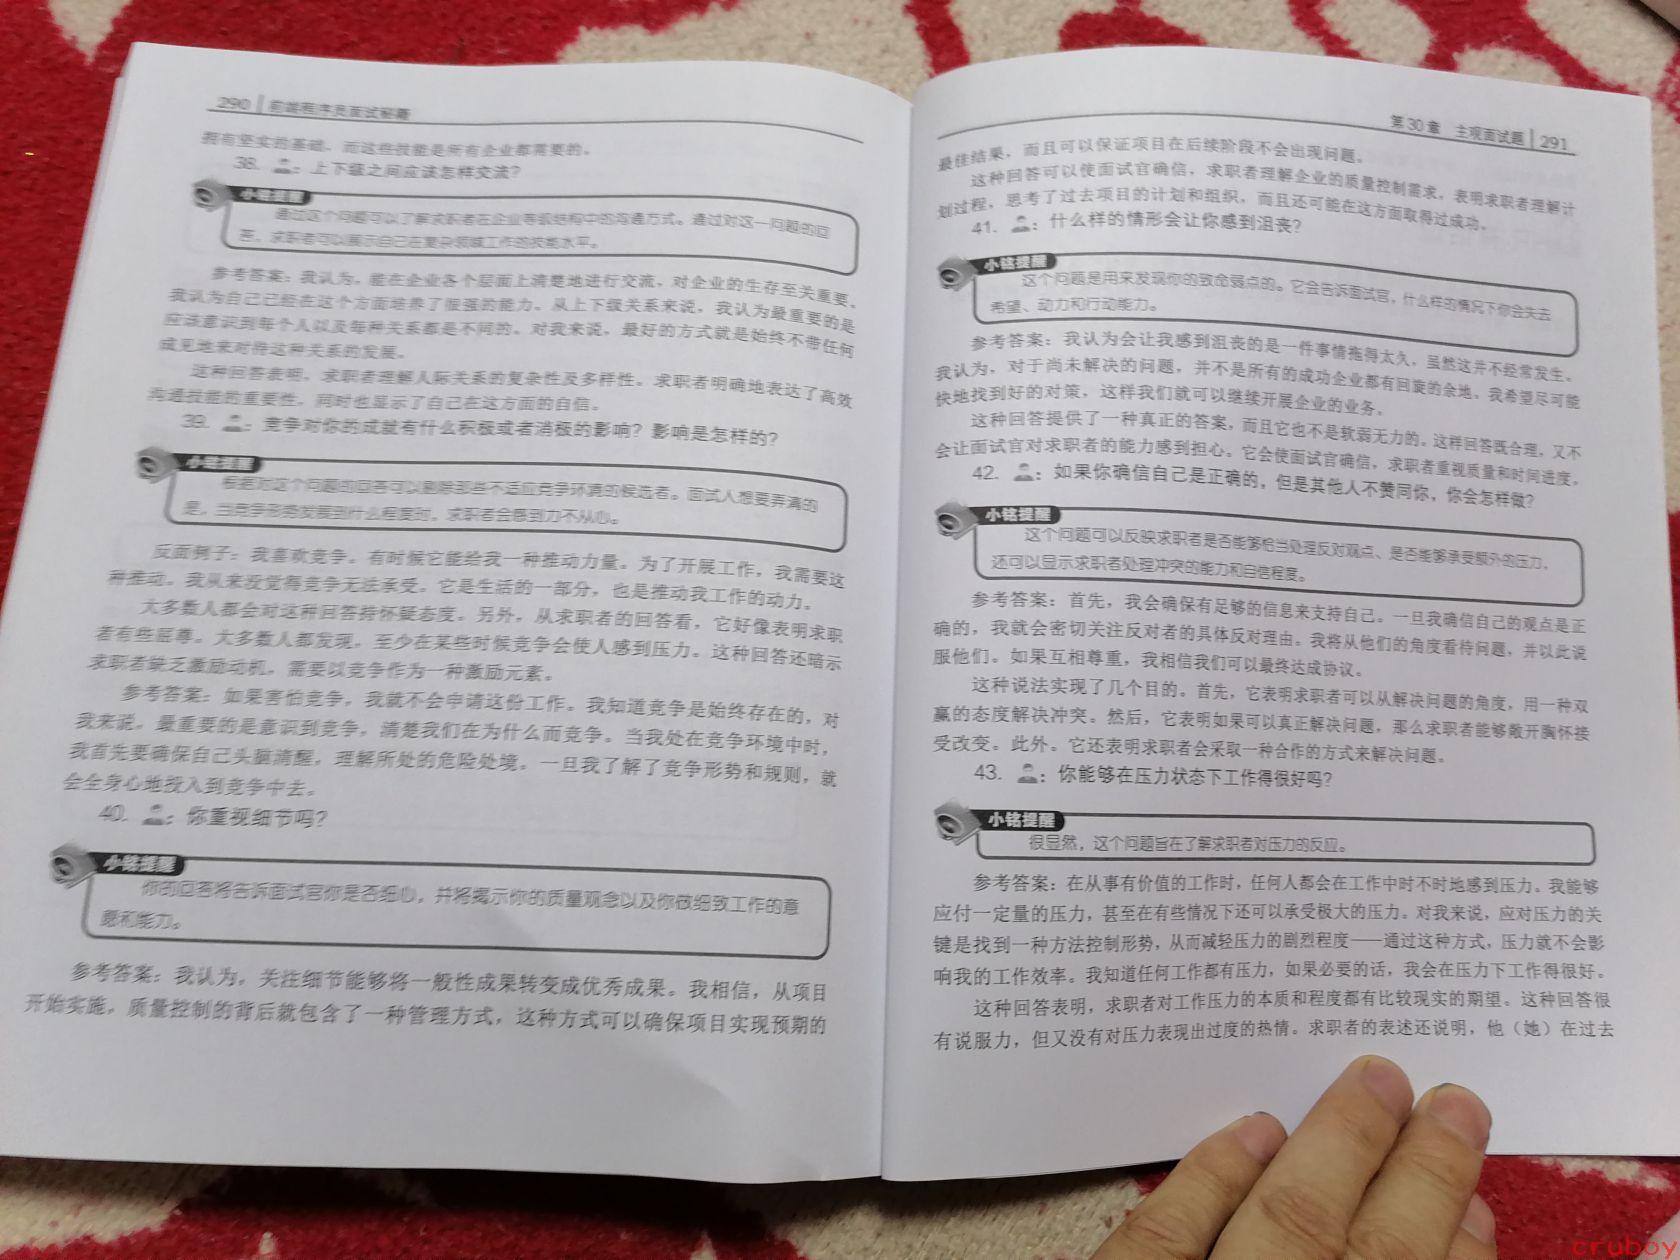 290 前端程序员面试秘籍
拥有坚实的基础,而这些技能是所有企业都需要的。
38. ：上下级之间应该怎样交流？
小铭提醒
通过这个问题可以了解求职者在企业等级结构中的沟通方式。通过对这一问题的回
答，求职者可以展示自己在复杂领域工作的技能水平。
参考答案：我认为，能在企业各个层面上清楚地进行交流，对企业的生存至关重要。
我认为自己已经在这个方面培养了很强的能力。从上下级关系来说，我认为最重要的是
应该意识到每个人以及每种关系都是不同的。对我来说，最好的方式就是始终不带任何
成见地来对待这种关系的发展。
这种回答表明，求职者理解人际关系的复杂性及多样性。求职者明确地表达了高效
沟通技能的重要性，同时也显示了自己在这方面的自信。
39. ：竞争对你的成就有什么积极或者消极的影响？影响是怎样的？
小铭提醒
根据对这个问题的回答可以剔除那些不适应竞争环境的候选者。面试人想要弄清的
是，当竞争形势发展到什么程度时，求职者会感到力不从心。
反面例子：我喜欢竞争。有时候它能给我一种推动力量。为了开展工作，我需要这
种推动。我从来没觉得竞争无法承受。它是生活的一部分，也是推动我工作的动力。
大多数人都会对这种回答持怀疑态度。另外，从求职者的回答看，它好像表明求职
者有些屈尊。大多数人都发现，至少在某些时候竞争会使人感到压力。这种回答还暗示
求职者缺乏激励动机，需要以竞争作为一种激励元素。
参考答案：如果害怕竞争，我就不会申请这份工作。我知道竞争是始终存在的，对
我来说，最重要的是意识到竞争，清楚我们在为什么而竞争。当我处在竞争环境中时，
我首先要确保自己头脑清醒，理解所处的危险处境。一旦我了解了竞争形势和规则，就
会全身心地投入到竞争中去。
40. ：你重视细节吗？
小铭提醒
你的回答将告诉面试官你是否细心，并将揭示你的质量观念以及你做细致工作的意
愿和能力。
参考答案：我认为，关注细节能够将一般性成果转变成优秀成果。我相信，从项目
开始实施，质量控制的背后就包含了一种管理方式，这种方式可以确保项目实现预期的
第30章 主观面试题 291
最佳结果，而且可以保证项目在后续阶段不会出现问题。
这种回答可以使面试官确信，求职者理解企业的质量控制需求，表明求职者理解计
划过程，思考了过去项目的计划和组织，而且还可能在这方面取得过成功。
41. ：什么样的情形会让你感到沮丧？
小铭提醒
这个问题是用来发现你的致命弱点的。它会告诉面试官，什么样的情况下你会失去
希望、动力和行动能力。
参考答案：我认为会让我感到沮丧的是一件事情拖得太久，虽然这并不经常发生。
我认为，对于尚未解决的问题，并不是所有的成功企业都有回旋的余地。我希望尽可能
快地找到好的对策，这样我们就可以继续开展企业的业务。
这种回答提供了一种真正的答案，而且它也不是软弱无力的。这样回答既合理，又不
会让面试官对求职者的能力感到担心。它会使面试官确信，求职者重视质量和时间进度。
42. ：如果你确信自己是正确的，但是其他人不赞同你，你会怎样做？
小铭提醒
这个问题可以反映求职者是否能够恰当处理反对观点、是否能够承受额外的压力，
还可以显示求职者处理冲突的能力和自信程度。
参考答案：首先，我会确保有足够的信息来支持自己。一旦我确信自己的观点是正
确的，我就会密切关注反对者的具体反对理由。我将从他们的角度看待问题，并以此说
服他们。如果互相尊重，我相信我们可以最终达成协议。
这种说法实现了几个目的。首先，它表明求职者可以从解决问题的角度，用一种双
赢的态度解决冲突。然后，它表明如果可以真正解决问题，那么求职者能够敞开胸怀接
受改变。此外。它还表明求职者会采取一种合作的方式来解决问题。
43. ：你能够在压力状态下工作得很好吗？
小铭提醒
很显然，这个问题旨在了解求职者对压力的反应。
参考答案：在从事有价值的工作时，任何人都会在工作中时不时地感到压力。我能够
应付一定量的压力，甚至在有些情况下还可以承受极大的压力。对我来说，应对压力的关
键是找到一种方法控制形势，从而减轻压力的剧烈程度——通过这种方式，压力就不会影
响我的工作效率。我知道任何工作都有压力，如果必要的话，我会在压力下工作得很好。
这种回答表明，求职者对工作压力的本质和程度都有比较现实的期望。这种回答很
有说服力，但又没有对压力表现出过度的热情。求职者的表述还说明，他（她）在过去
cruboy